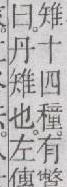 雉十四種。有鷩
曰。丹雉也。左傳